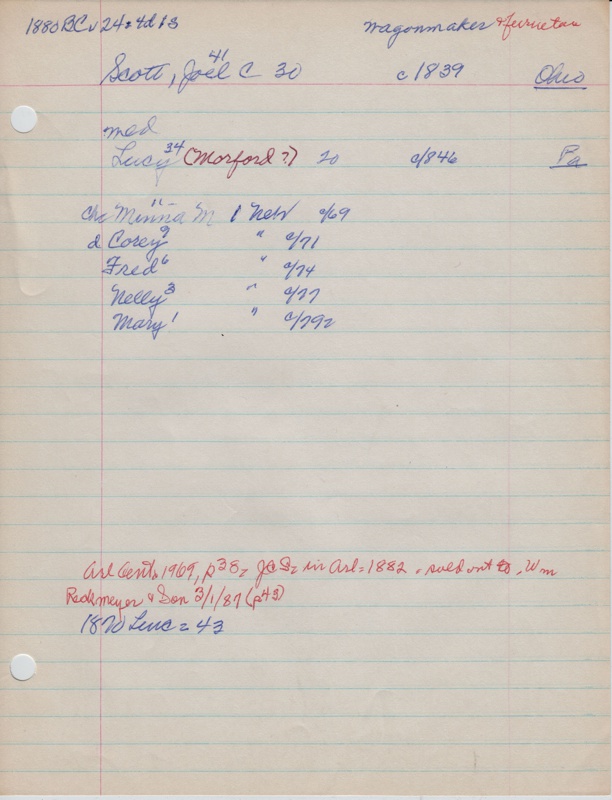 1880 BC v 24 = 4d 13 wagonmaker & furnetau
Scott, Joel C 41 30 c1839 Ohio
med
Lucy 34 (Morford?) 20 c1846 Pa
chr Minna M 11 1 Neb c/69
d Corey 9 " c/71
Fred 6 " c/74
Nelly 3 " c/77
Mary 1 " c/79z
Arl Cent. 1969, p38= JCS= in Arl=1882 - sold out to Wm
Reckmeyer & Son 3/1/87 (p43)
1870 = 43